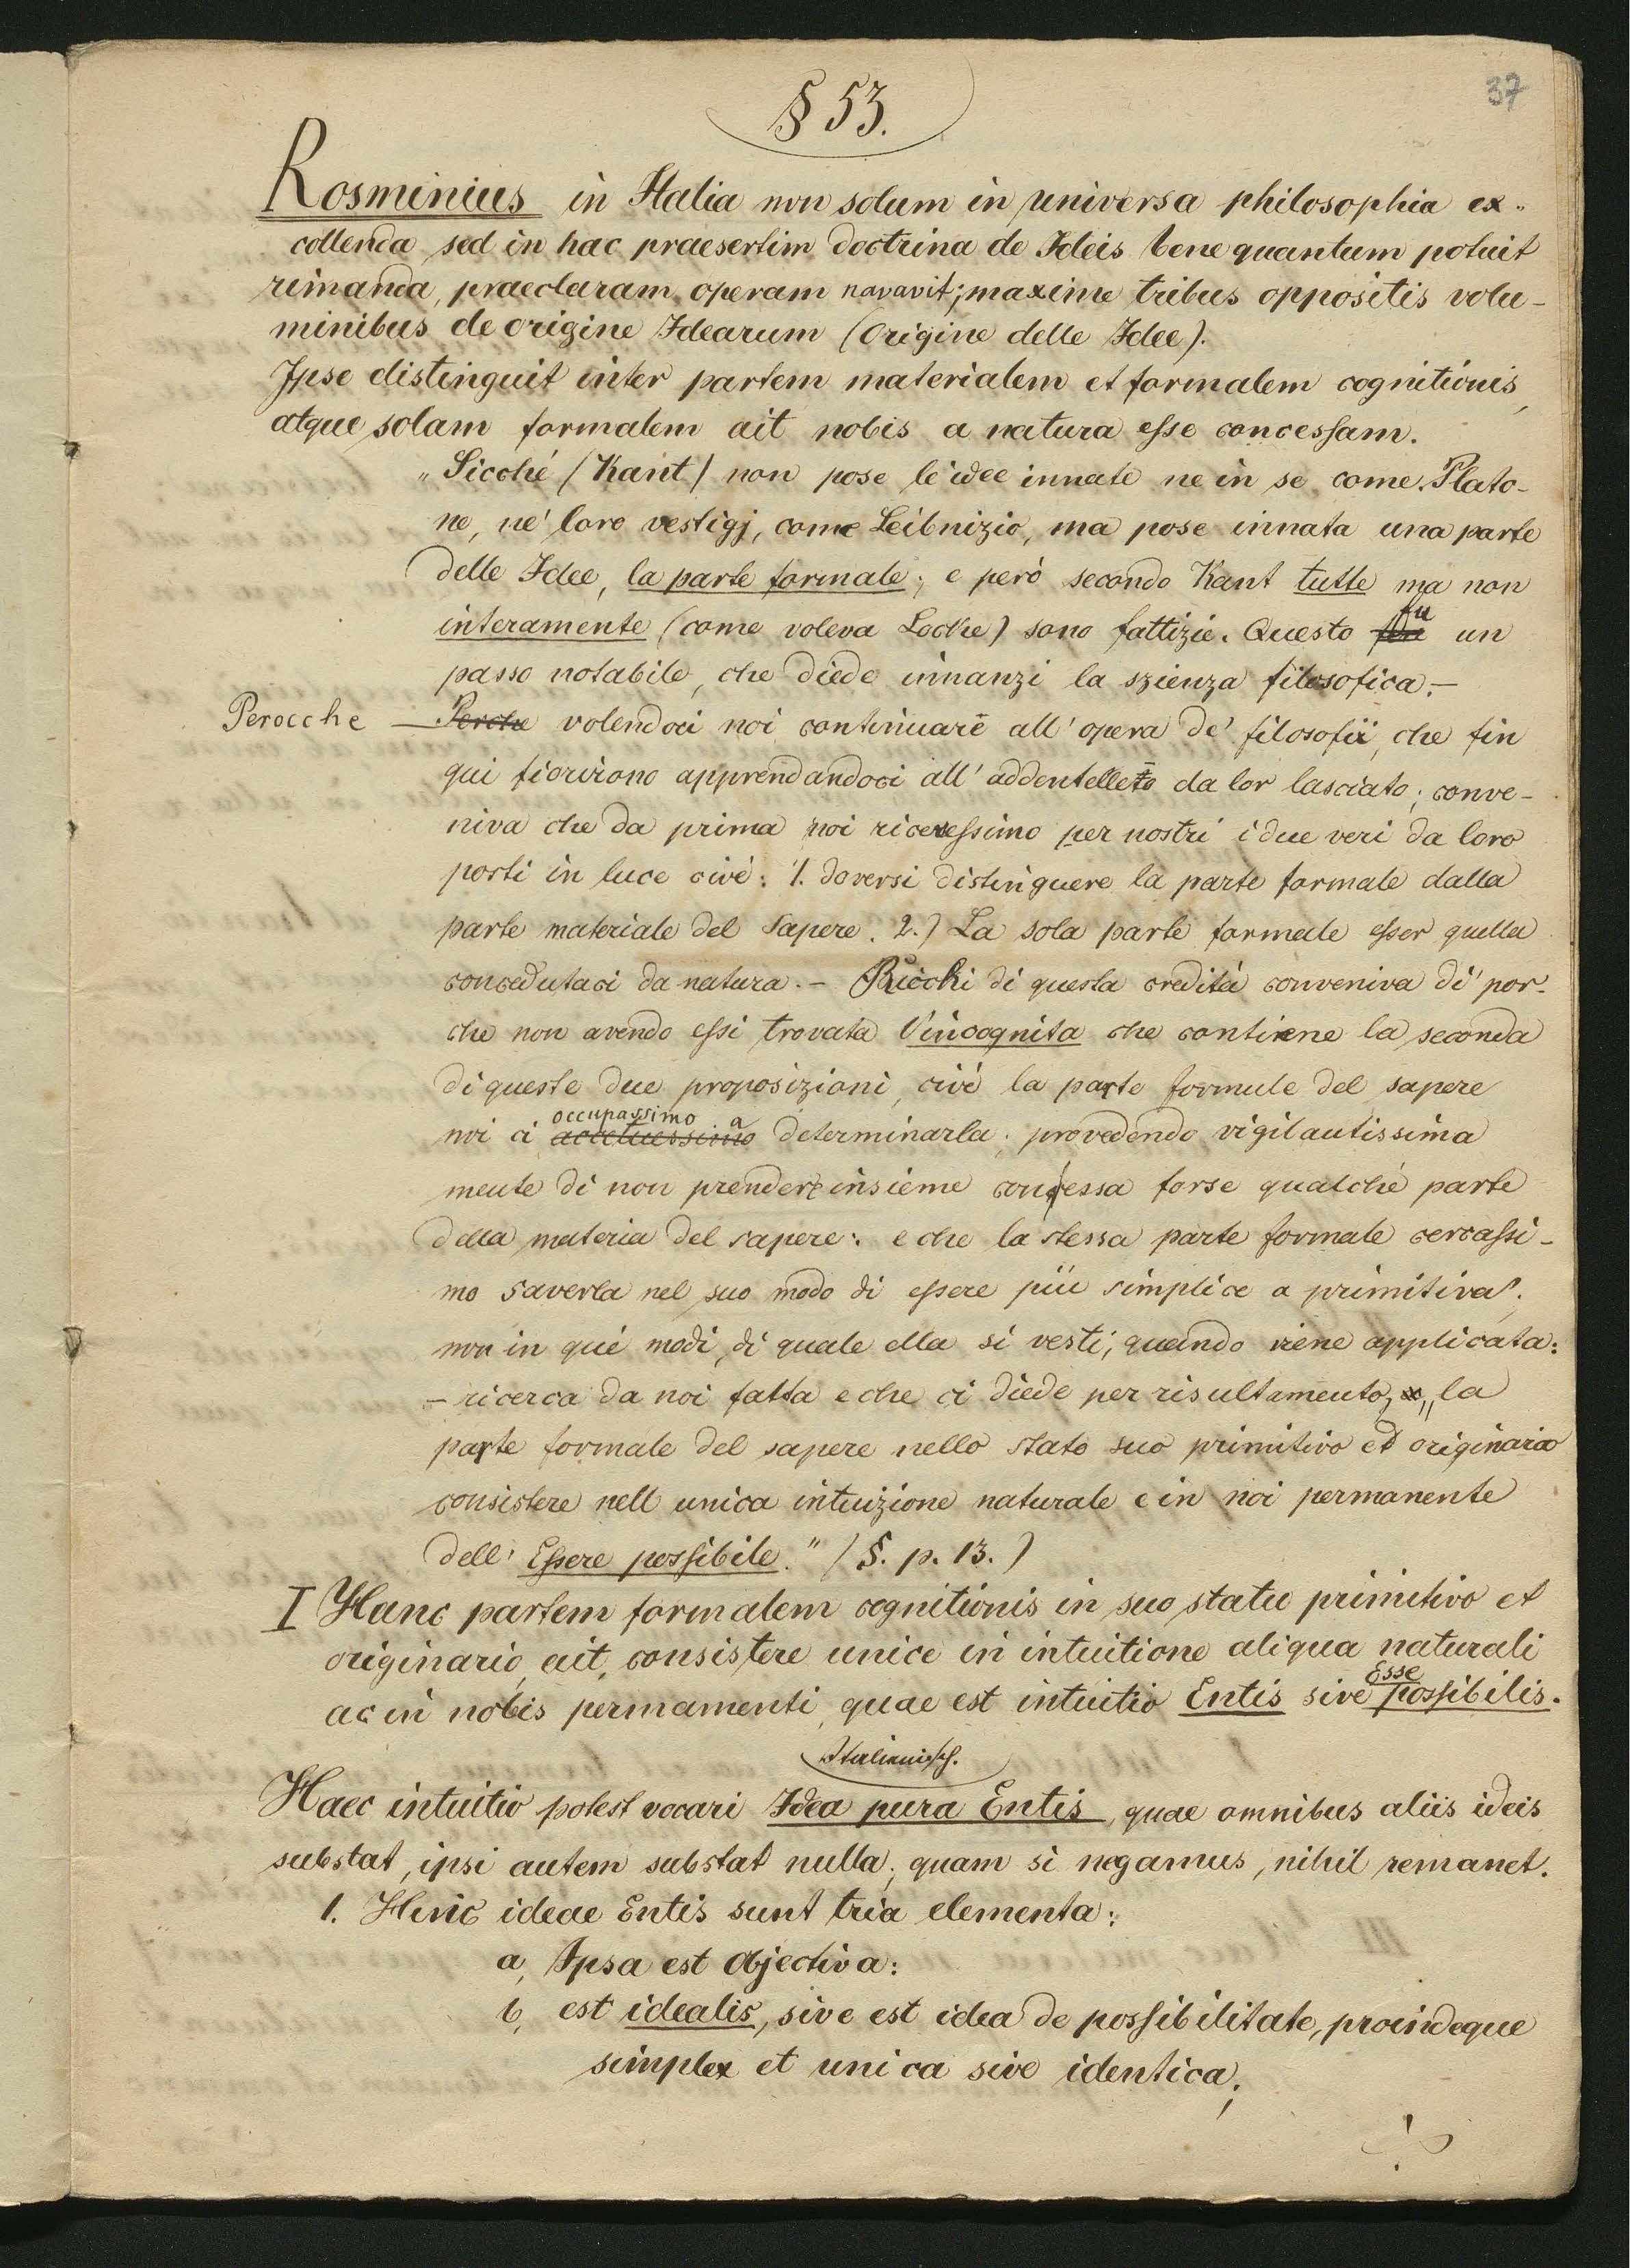 37
§ 53.
Rosminius in Italia non solum in universa philosophia ex-
collenda sed in hac praesertim doctrina de Ideis bene quantum potuit
rimanda, praeclaram operam navavit; maxime tribus oppositis volu-
minibus de origine Idearum (Origine delle Idee).
Ipse distinguit inter partem materialem et formalem cognitionis,
atque solam formalem ait nobis a natura esse concessam.
„Sicché (Kant) non pose le idee innate ne in se come Plato-
ne, ne' loro vestigj, come Leibnizio, ma pose innata una parte
delle Idee, la parte formale; e però secondo Kant tutte ma non
fu
interamente (come voleva Locke) sono fattizie. Questo un
passo notabile, che diede innanzi la szienza filosofica. –
Perocche – Perche volendoci noi continuare all' opera de' filosofii, che fin
qui fiorirono apprendandoci all' addentelleto da lor lasciato; conve-
niva che da prima noi ricevessimo per nostri i due veri da loro
porti in luce civé: 1. doversi distinguere la parte formale dalla
parte materiale del sapere. 2.) La sola parte formale esser quella
concedutaci da natura. – Ricchi di questa eredità conveniva di' por-
che non avendo essi trovata l'incognita che contiene la seconda
di queste due proposizioni, civé la parte formule del sapere
occupassimo a
noi ci determinarla; provedendo vigilautissima
mente di non prendere insieme con essa forse qualché parte
della materia del sapere: e che la stessa parte formale cercassi-
mo saverla nel suo modo di essere piü simplice a primitiva;
non in qué modi, di quale ella si vesti, quando viene applicata:
– ricerca da noi fatta e che ci diede per risultamento, „la
parte formale del sapere nello stato suo primitivo ed originario
consistere nell unica intuizione naturale e in noi permanente
dell' Essere possibile." (§. p. 13.)
I Hanc partem formalem cognitionis in suo statu primitivo et
originario, ait, consistere unice in intuitione aliqua naturali
Esse
ac in nobis permamenti, quae est intuitio Entis sive possibilis.
Italienisch.
Haec intuitio potest vocari Idea pura Entis, quae omnibus aliis ideis
substat, ipsi autem substat nulla; quam si negamus, nihil remanet.
1. Huic ideae Entis sunt tria elementa:
a, Ipsa est objectiva:
b, est idealis, sive est idea de possibilitate, proindeque
simplex et unica sive identica;